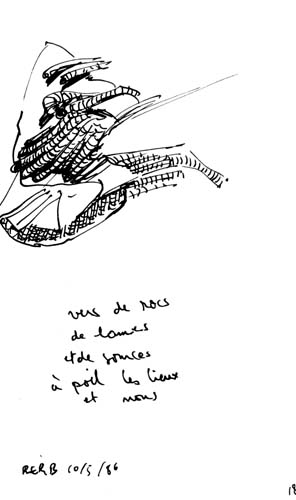 vers de rocs
de lames
et de sources
à poil les lieux
et nous
RERB 10/5/86
18